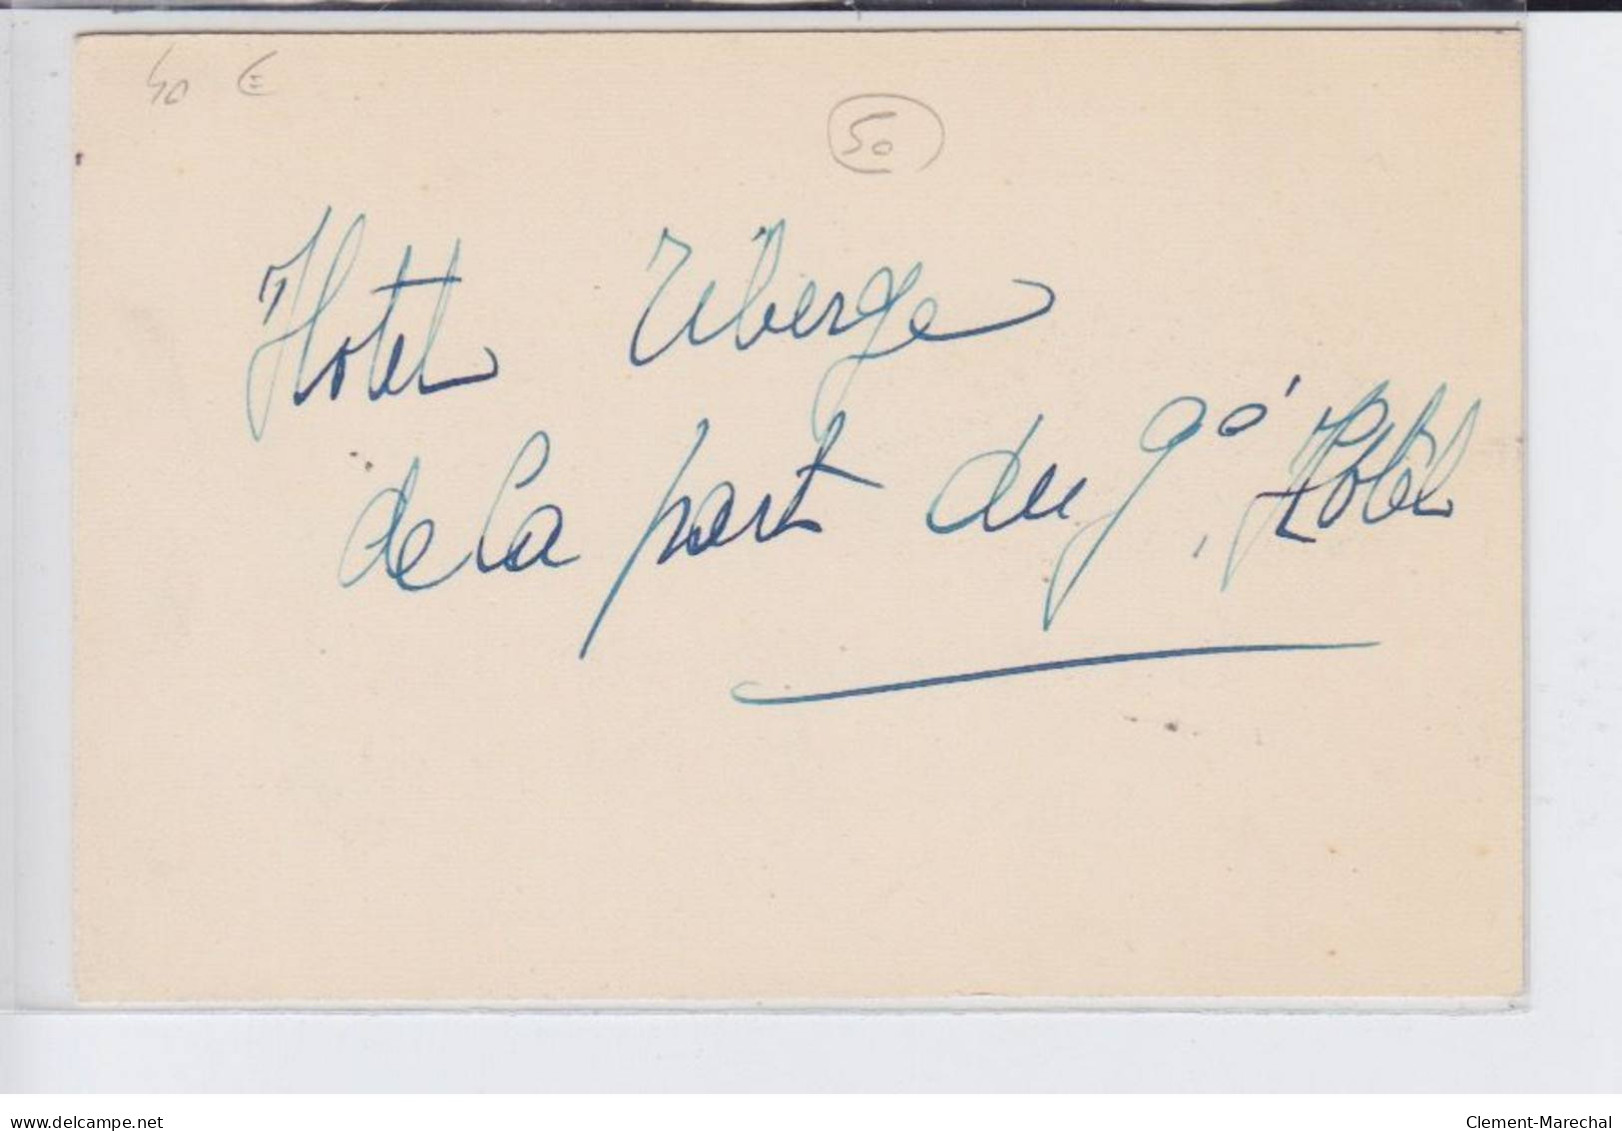 40 €
50
Hotel Uberge
de la part du gd Hotel
www.delcampe.net
Clement-Marechal